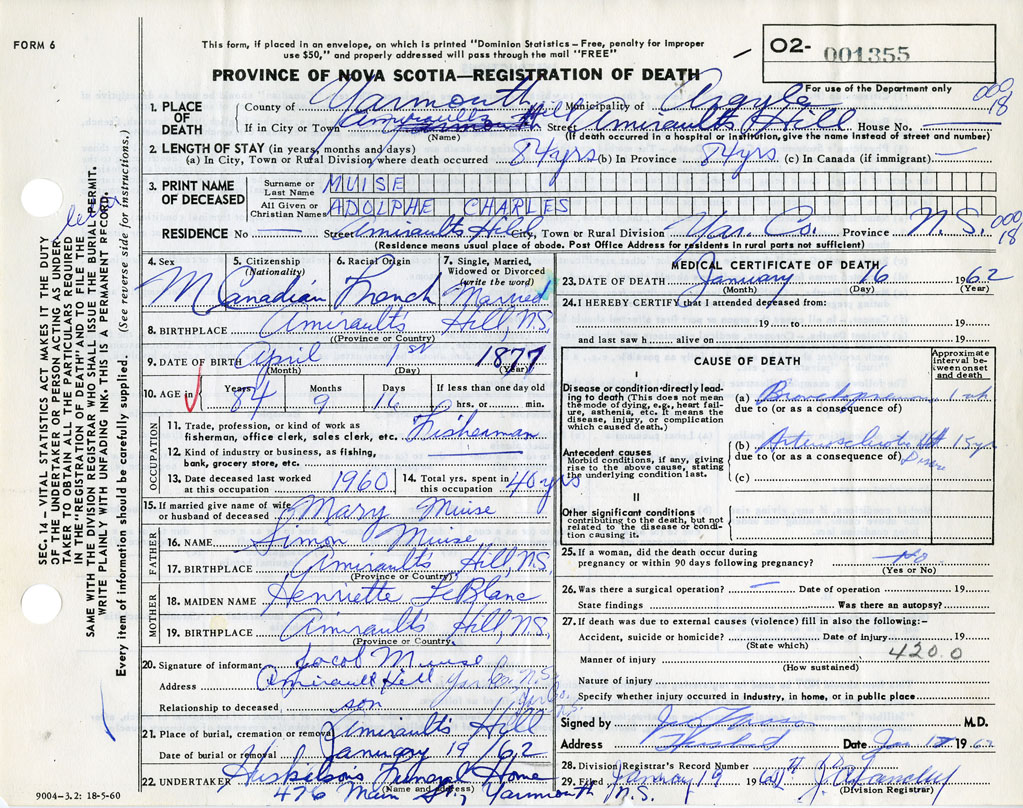 FORM 6
This form, if placed in an envelope, on which is printed "Dominion Statistics – Free, penalty for improper
use $50," and properly addressed will pass through the mail "FREE"
O2- 001355
PROVINCE OF NOVA SCOTIA—REGISTRATION OF DEATH
For use of the Department only
1. PLACE OF DEATH County of Yarmouth Municipality of Argyle
000 18
If in City or Town Amiraults Hill Street Amiraults Hill House No. —
(Name) (If death occurred in a hospital or institution, give the name instead of street and number)
2. LENGTH OF STAY (in years, months and days)
(a) In City, Town or Rural Division where death occurred 84 yrs (b) In Province 84 yrs (c) In Canada (if immigrant) —
3. PRINT NAME OF DECEASED
Surname or Last Name MUISE
All Given or Christian Names ADOLPHE CHARLES
RESIDENCE No — Street Amiraults Hill City, Town or Rural Division Yar. Co. Province N.S.
000 18
(Residence means usual place of abode. Post Office Address for residents in rural parts not sufficient)
4. Sex M
5. Citizenship (Nationality) Canadian
6. Racial Origin French
7. Single, Married, Widowed or Divorced (write the word) Married
8. BIRTHPLACE Amirault's Hill, N.S.
(Province or Country)
9. DATE OF BIRTH April 1st 1877
(Month) (Day) (Year)
10. AGE in Years 84 Months 9 Days 16 If less than one day old hrs. or min.
OCCUPATION
11. Trade, profession, or kind of work as fisherman, office clerk, sales clerk, etc. Fisherman
12. Kind of industry or business, as fishing, bank, grocery store, etc.
13. Date deceased last worked at this occupation 1960
14. Total yrs. spent in this occupation 40 yrs
15. If married give name of wife or husband of deceased Mary Muise
FATHER
16. NAME Simon Muise
17. BIRTHPLACE Amiraults Hill, N.S.
(Province or Country)
MOTHER
18. MAIDEN NAME Henriette LeBlanc
19. BIRTHPLACE Amiraults Hill, N.S.
(Province or Country)
20. Signature of informant Jacob Muise
Address Amirault Hill Yar. Co. N.S.
Relationship to deceased son
21. Place of burial, cremation or removal Amirault's Hill
Date of burial or removal January 19/62
22. UNDERTAKER Huskilson's Funeral Home
(Name and address)
476 Main St., Yarmouth N.S.
9004-3.2: 18-5-60
MEDICAL CERTIFICATE OF DEATH
23. DATE OF DEATH January 16 1962
(Month) (Day) (Year)
24. I HEREBY CERTIFY that I attended deceased from:
19 to 19
and last saw h alive on 19
CAUSE OF DEATH
Approximate interval between onset and death
I
Disease or condition directly leading to death (This does not mean the mode of dying, e.g., heart failure, asthenia, etc. It means the disease, injury, or complication which caused death.)
(a)
due to (or as a consequence of)
Antecedent causes
Morbid conditions, if any, giving rise to the above cause, stating the underlying condition last.
(b)
due to (or as a consequence of)
(c)
II
Other significant conditions
contributing to the death, but not related to the disease or condition causing it.
25. If a woman, did the death occur during pregnancy or within 90 days following pregnancy? No
(Yes or No)
26. Was there a surgical operation? — Date of operation 19
State findings Was there an autopsy?
27. If death was due to external causes (violence) fill in also the following:-
Accident, suicide or homicide? Date of injury 19
(State which)
420.0
Manner of injury
(How sustained)
Nature of injury
Specify whether injury occurred in industry, in home, or in public place
Signed by M.D.
Address Date Jan 1962
28. Division Registrar's Record Number
29. Filed January 19 1962
(Division Registrar)
SEC. 14 – VITAL STATISTICS ACT MAKES IT THE DUTY
OF THE UNDERTAKER OR PERSON ACTING AS UNDERTAKER
TO OBTAIN ALL THE PARTICULARS REQUIRED
IN THE "REGISTRATION OF DEATH" AND TO FILE THE
SAME WITH THE DIVISION REGISTRAR WHO SHALL ISSUE THE BURIAL PERMIT.
WRITE PLAINLY WITH UNFADING INK. THIS IS A PERMANENT RECORD.
Every item of information should be carefully supplied. (See reverse side for instructions.)